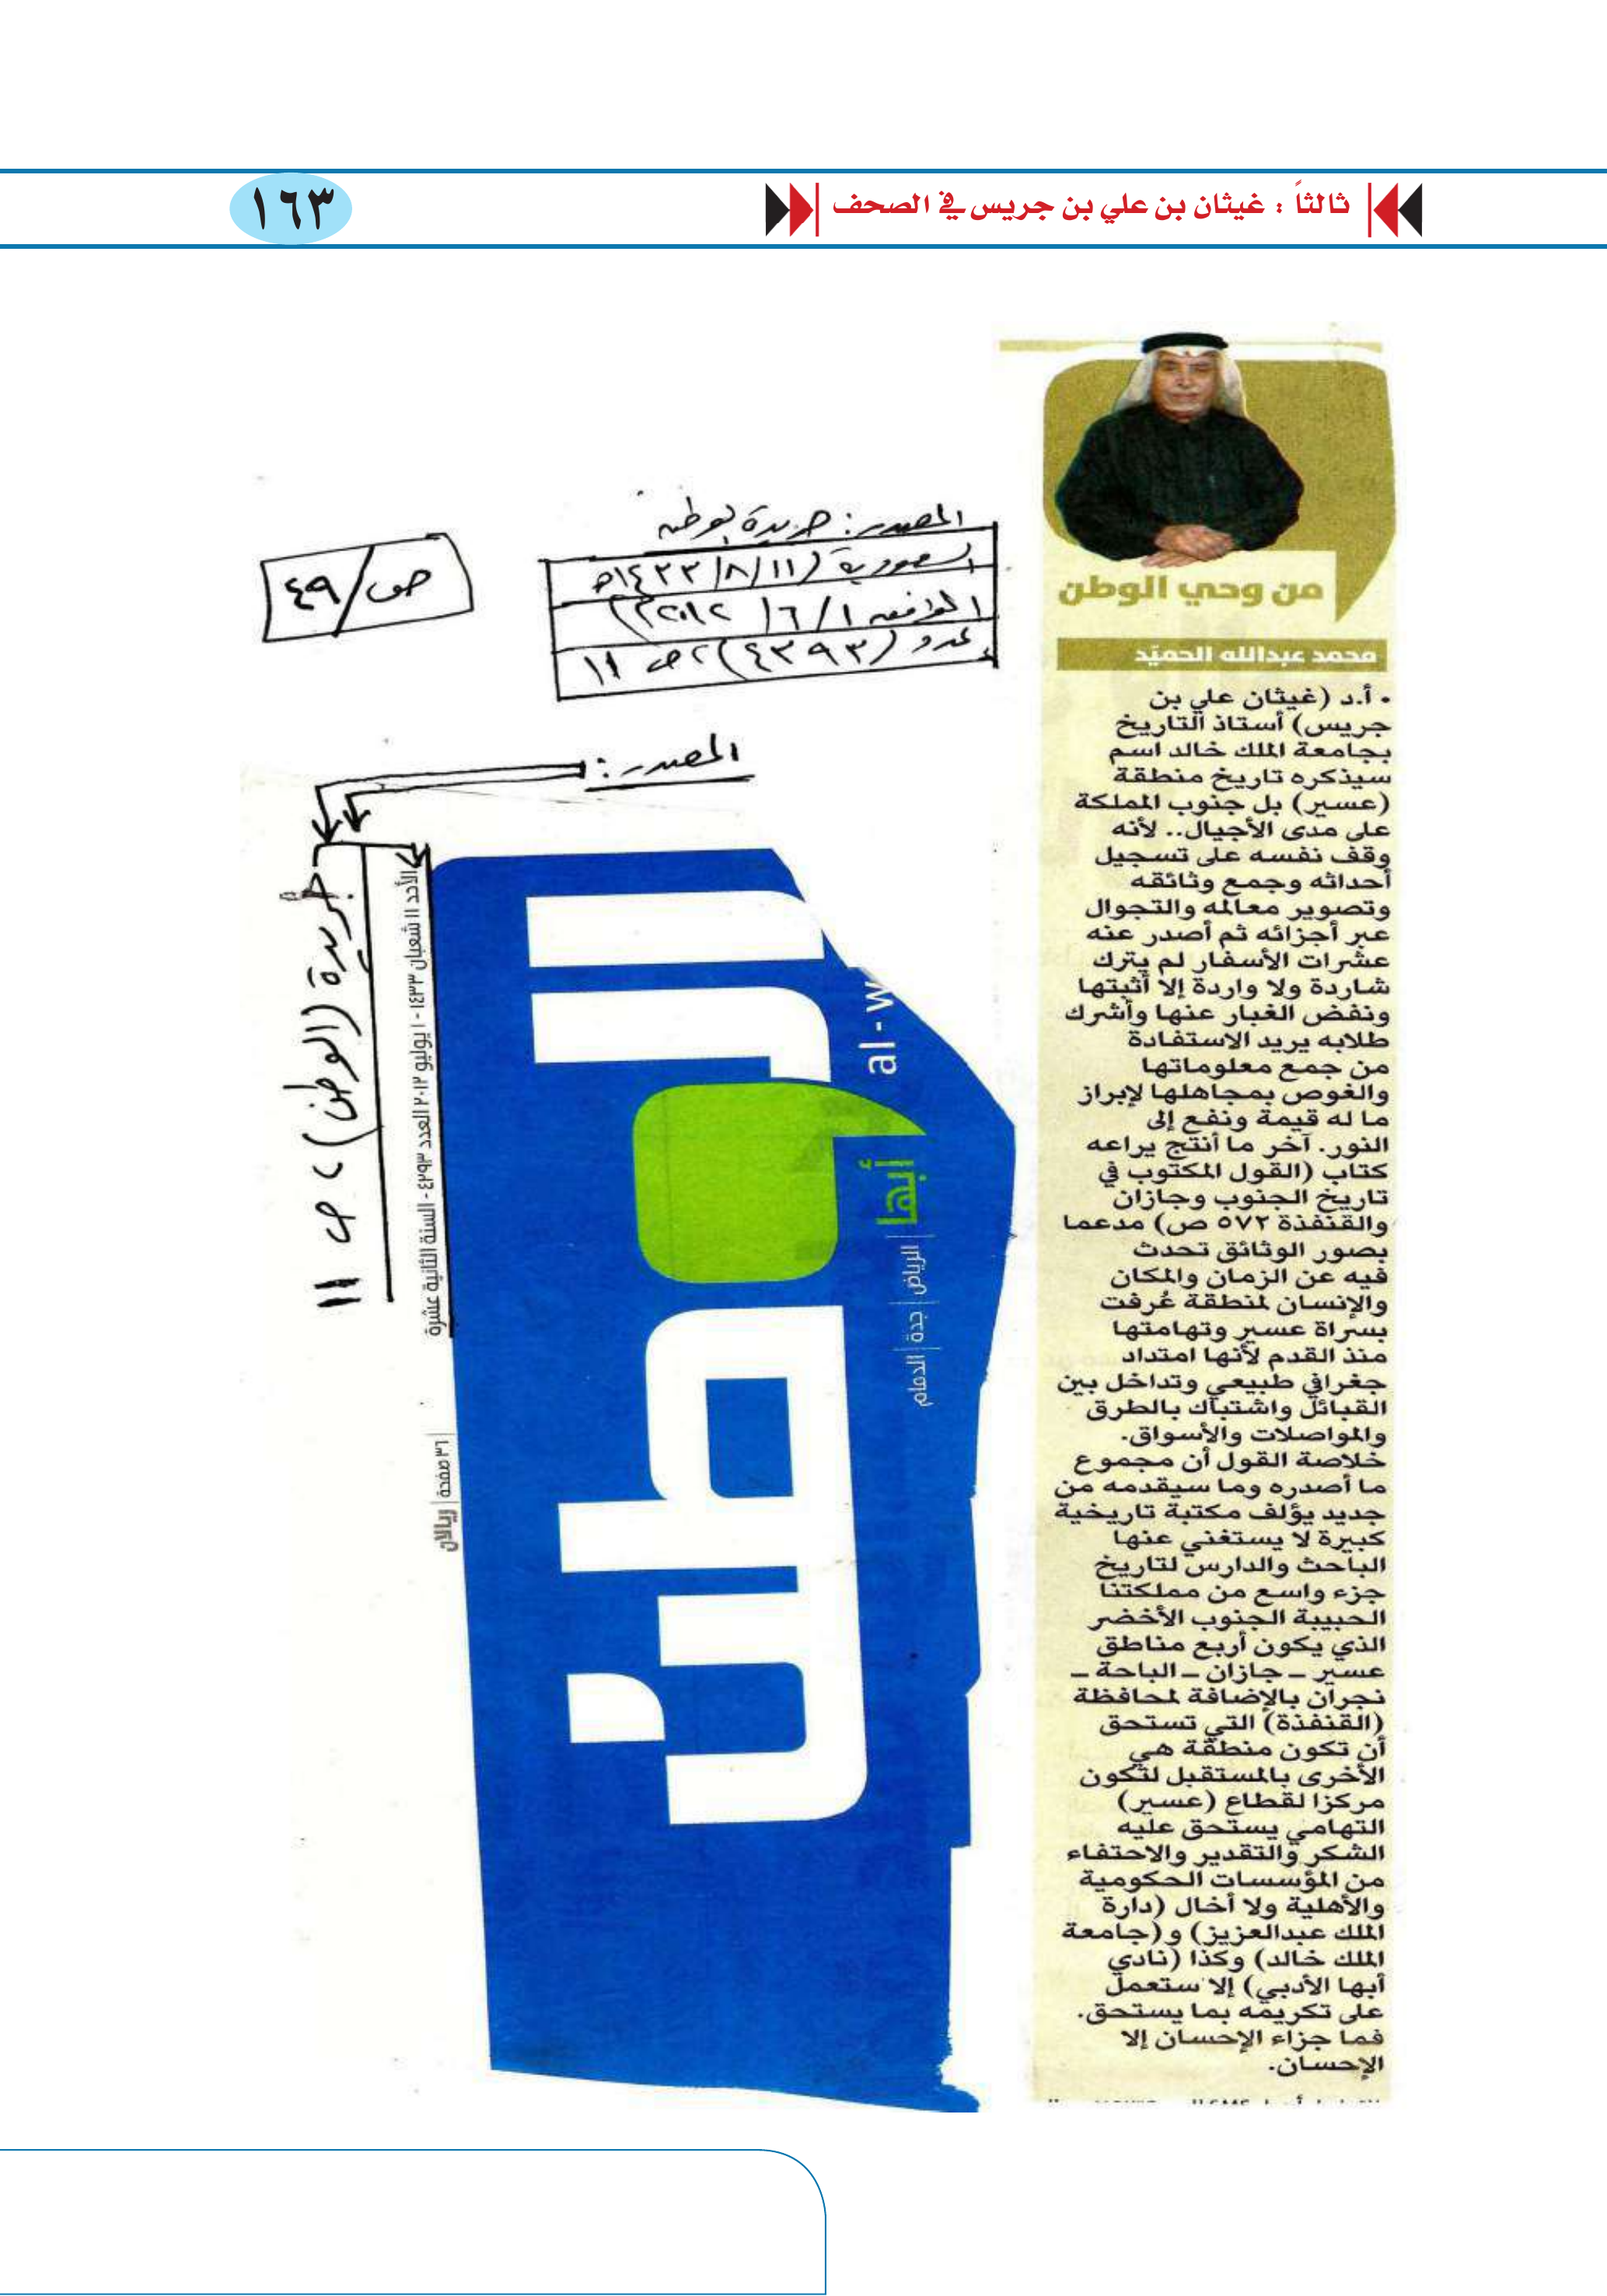 ثالثاً : غيثان بن علي بن جريس في الصحف
١٦٣
من وحي الوطن
محمد عبدالله الحميّد
• أ.د (غيثان علي بن
جريس) أستاذ التاريخ
بجامعة الملك خالد اسم
سيذكره تاريخ منطقة
(عسير) بل جنوب المملكة
على مدى الأجيال.. لأنه
وقف نفسه على تسجيل
أحداثه وجمع وثائقه
وتصوير معالمه والتجوال
عبر أجزائه ثم أصدر عنه
عشرات الأسفار لم يترك
شاردة ولا واردة إلا أثبتها
ونفض الغبار عنها وأشرك
طلابه يريد الاستفادة
من جمع معلوماتها
والغوص بمجاهلها لإبراز
ما له قيمة ونفع إلى
النور. آخر ما أنتج يراعه
كتاب (القول المكتوب في
تاريخ الجنوب وجازان
والقنفذة ٥٧٢ ص) مدعما
بصور الوثائق تحدث
فيه عن الزمان والمكان
والإنسان لمنطقة عُرفت
بسراة عسير وتهامتها
منذ القدم لأنها امتداد
جغرافي طبيعي وتداخل بين
القبائل واشتباك بالطرق
والمواصلات والأسواق.
خلاصة القول أن مجموع
ما أصدره وما سيقدمه من
جديد يؤلف مكتبة تاريخية
كبيرة لا يستغني عنها
الباحث والدارس لتاريخ
جزء واسع من مملكتنا
الحبيبة الجنوب الأخضر
الذي يكون أربع مناطق
عسير – جازان – الباحة –
نجران بالإضافة لمحافظة
(القنفذة) التي تستحق
أن تكون منطقة هي
الأخرى بالمستقبل لتكون
مركزا لقطاع (عسير)
التهامي يستحق عليه
الشكر والتقدير والاحتفاء
من المؤسسات الحكومية
والأهلية ولا أخال (دارة
الملك عبدالعزيز) و(جامعة
الملك خالد) وكذا (نادي
أبها الأدبي) إلا ستعمل
على تكريمه بما يستحق.
فما جزاء الإحسان إلا
الإحسان.
المصدر: جريدة الوطن
السعودية (١١/٨/١٤٣٣هـ
الموافق ١/٦/٢٠١٢م)
عدد (٤٣٩٣)، ص ١١
ص/٤٩
المصدر:
جريدة (الوطن)، ص ١١
الأحد ١١ شعبان ١٤٣٣ - ١ يوليو ٢٠١٢ العدد ٤٢٩٣ - السنة الثانية عشرة
٣٦ صفحة | ريالان
الوطن
al - w
أبها | الرياض | جدة | الدمام